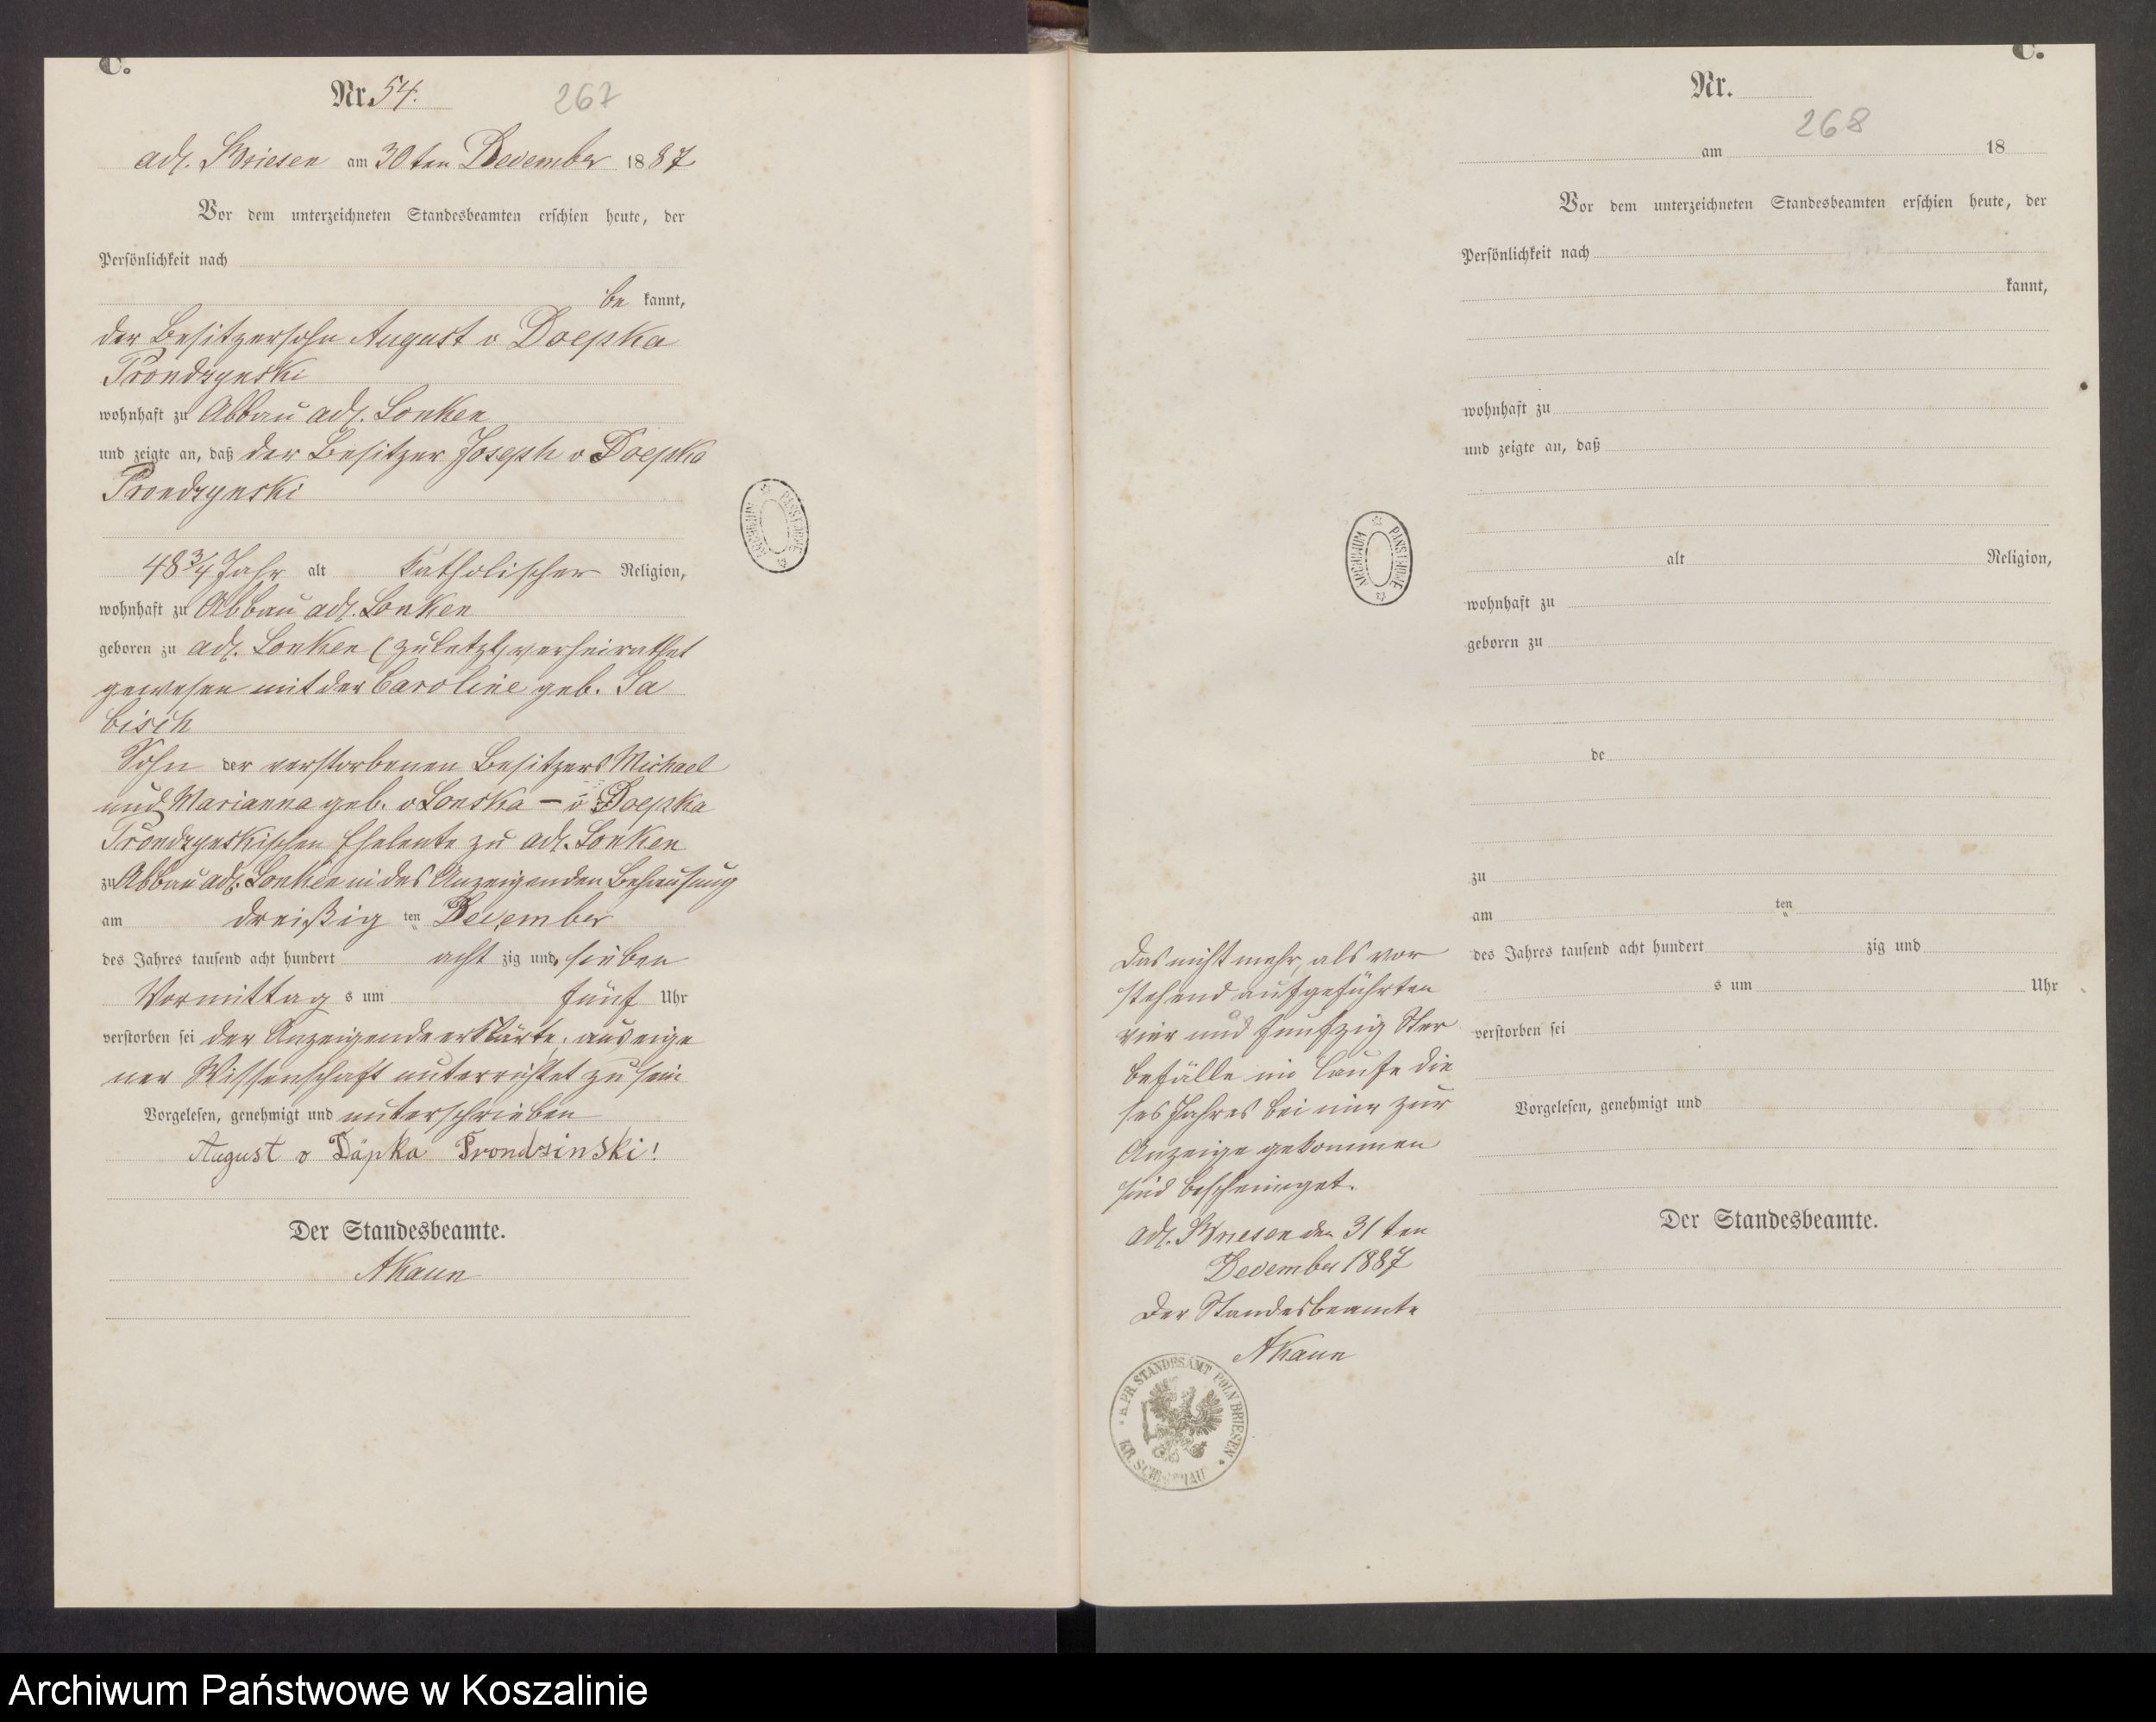 C.
Nr. 54.
267
adl. Briesen am 30ten December 1887
Vor dem unterzeichneten Standesbeamten erschien heute, der
Persönlichkeit nach
be kannt,
der Besitzersohn August v Doepka
Prondzynski
wohnhaft zu Abbau adl. Lonken
und zeigte an, daß der Besitzer Joseph v Doepka
Prondzynski
48 3/4 Jahr alt Katholischer Religion,
wohnhaft zu Abbau adl. Lonken
geboren zu adl. Lonken (zuletzt) verheirathet
gewesen mit der Caroline geb. Sa
bisch
Sohn der verstorbenen Besitzers Michael
und Marianna geb. v Lonska – v Doepka
Prondzynskischen Eheleute zu adl. Lonken
zu Abbau adl. Lonken in des Anzeigenden Behausung
am dreißig ten December
des Jahres tausend acht hundert acht zig und sieben
Vormittag s um fünf Uhr
verstorben sei der Anzeigende erklärte, aus eige
ner Wissenschaft unterrichtet zu sein
Vorgelesen, genehmigt und unterschrieben
August v Däpka Prondzinski!
Der Standesbeamte.
AKaun
ARCHIWUM PAŃSTWOWE
C.
Nr.
268
am 18
Vor dem unterzeichneten Standesbeamten erschien heute, der
Persönlichkeit nach
kannt,
wohnhaft zu
und zeigte an, daß
alt Religion,
wohnhaft zu
geboren zu
de
zu
am ten
des Jahres tausend acht hundert zig und
s um Uhr
verstorben sei
Vorgelesen, genehmigt und
Der Standesbeamte.
ARCHIWUM PAŃSTWOWE
Das nicht mehr, als vor
stehend aufgeführten
vier und funfzig Ster
befälle im Laufe die
ses Jahres bei mir zur
Anzeige gekommen
sind bescheiniget.
adl. Briesen den 31ten
December 1887
Der Standesbeamte
AKaun
K. PR. STANDESAMT POLN BRIESEN
KR. SCHLOCHAU
Archiwum Państwowe w Koszalinie